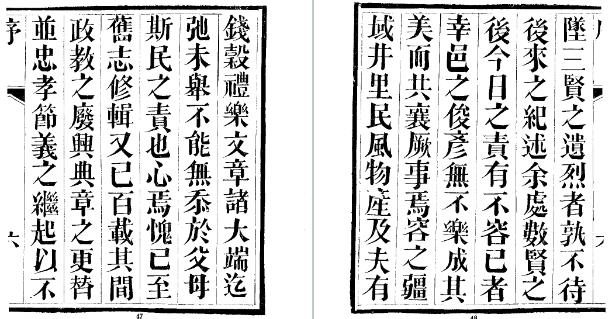 錢穀禮樂文章諸大端迄
弛未舉不能無忝於父母
斯民之責也心焉愧已至
舊志修輯又已百載其間
政教之廢興典章之更替
並忠孝節義之繼起以不
序 六
47
墜三賢之遺烈者孰不待
後來之紀述余處數賢之
後今日之責有不容已者
幸邑之俊彥無不樂成其
美而共襄厥事焉容之疆
域井里民風物產及夫有
48